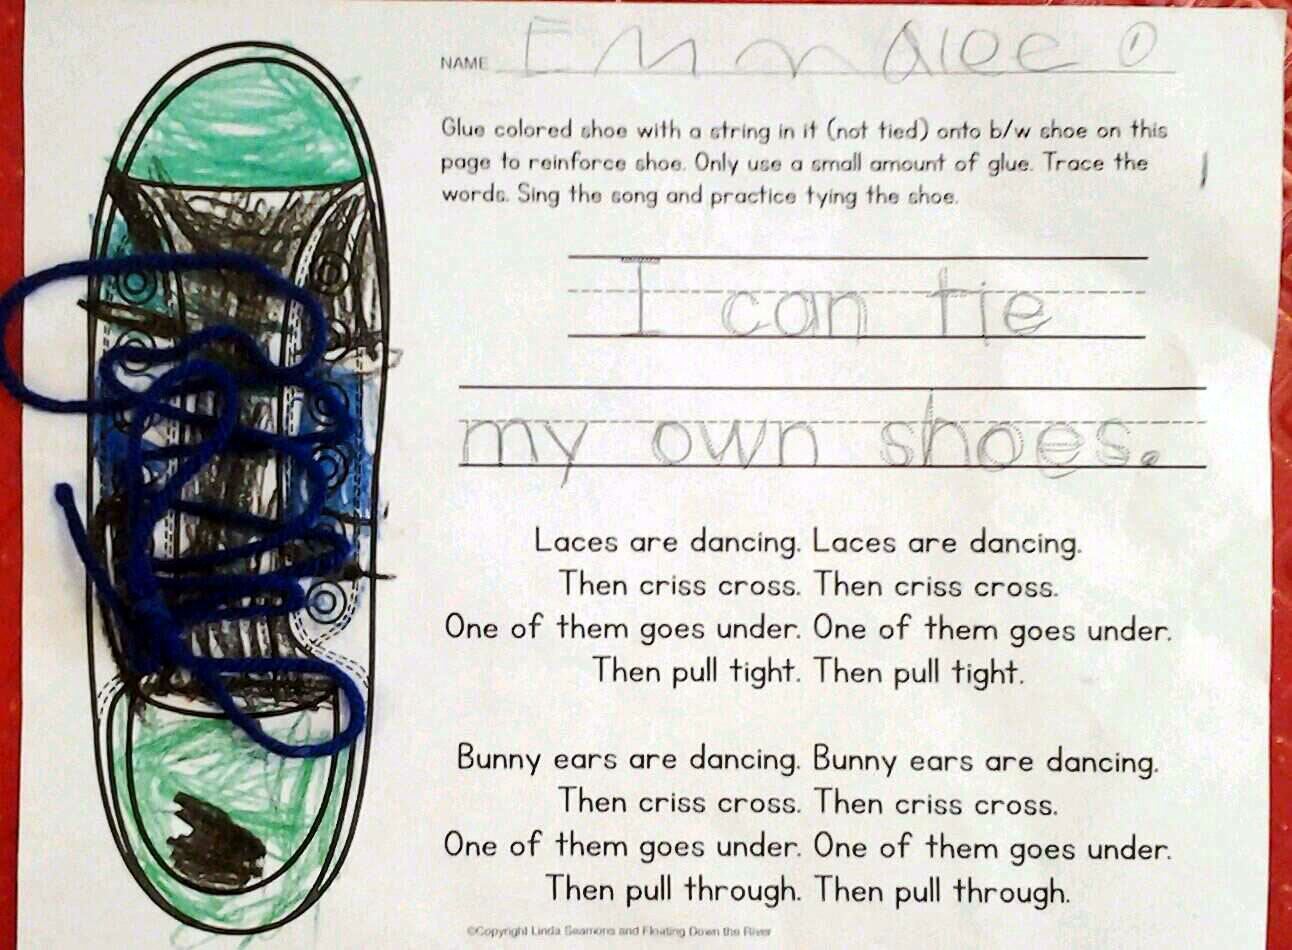 NAME Emmalee
Glue colored shoe with a string in it (not tied) onto b/w shoe on this
page to reinforce shoe. Only use a small amount of glue. Trace the
words. Sing the song and practice tying the shoe.
I can tie
my own shoes.
Laces are dancing. Laces are dancing.
Then criss cross. Then criss cross.
One of them goes under. One of them goes under.
Then pull tight. Then pull tight.
Bunny ears are dancing. Bunny ears are dancing.
Then criss cross. Then criss cross.
One of them goes under. One of them goes under.
Then pull through. Then pull through.
©Copyright Linda Seamons and Floating Down the River